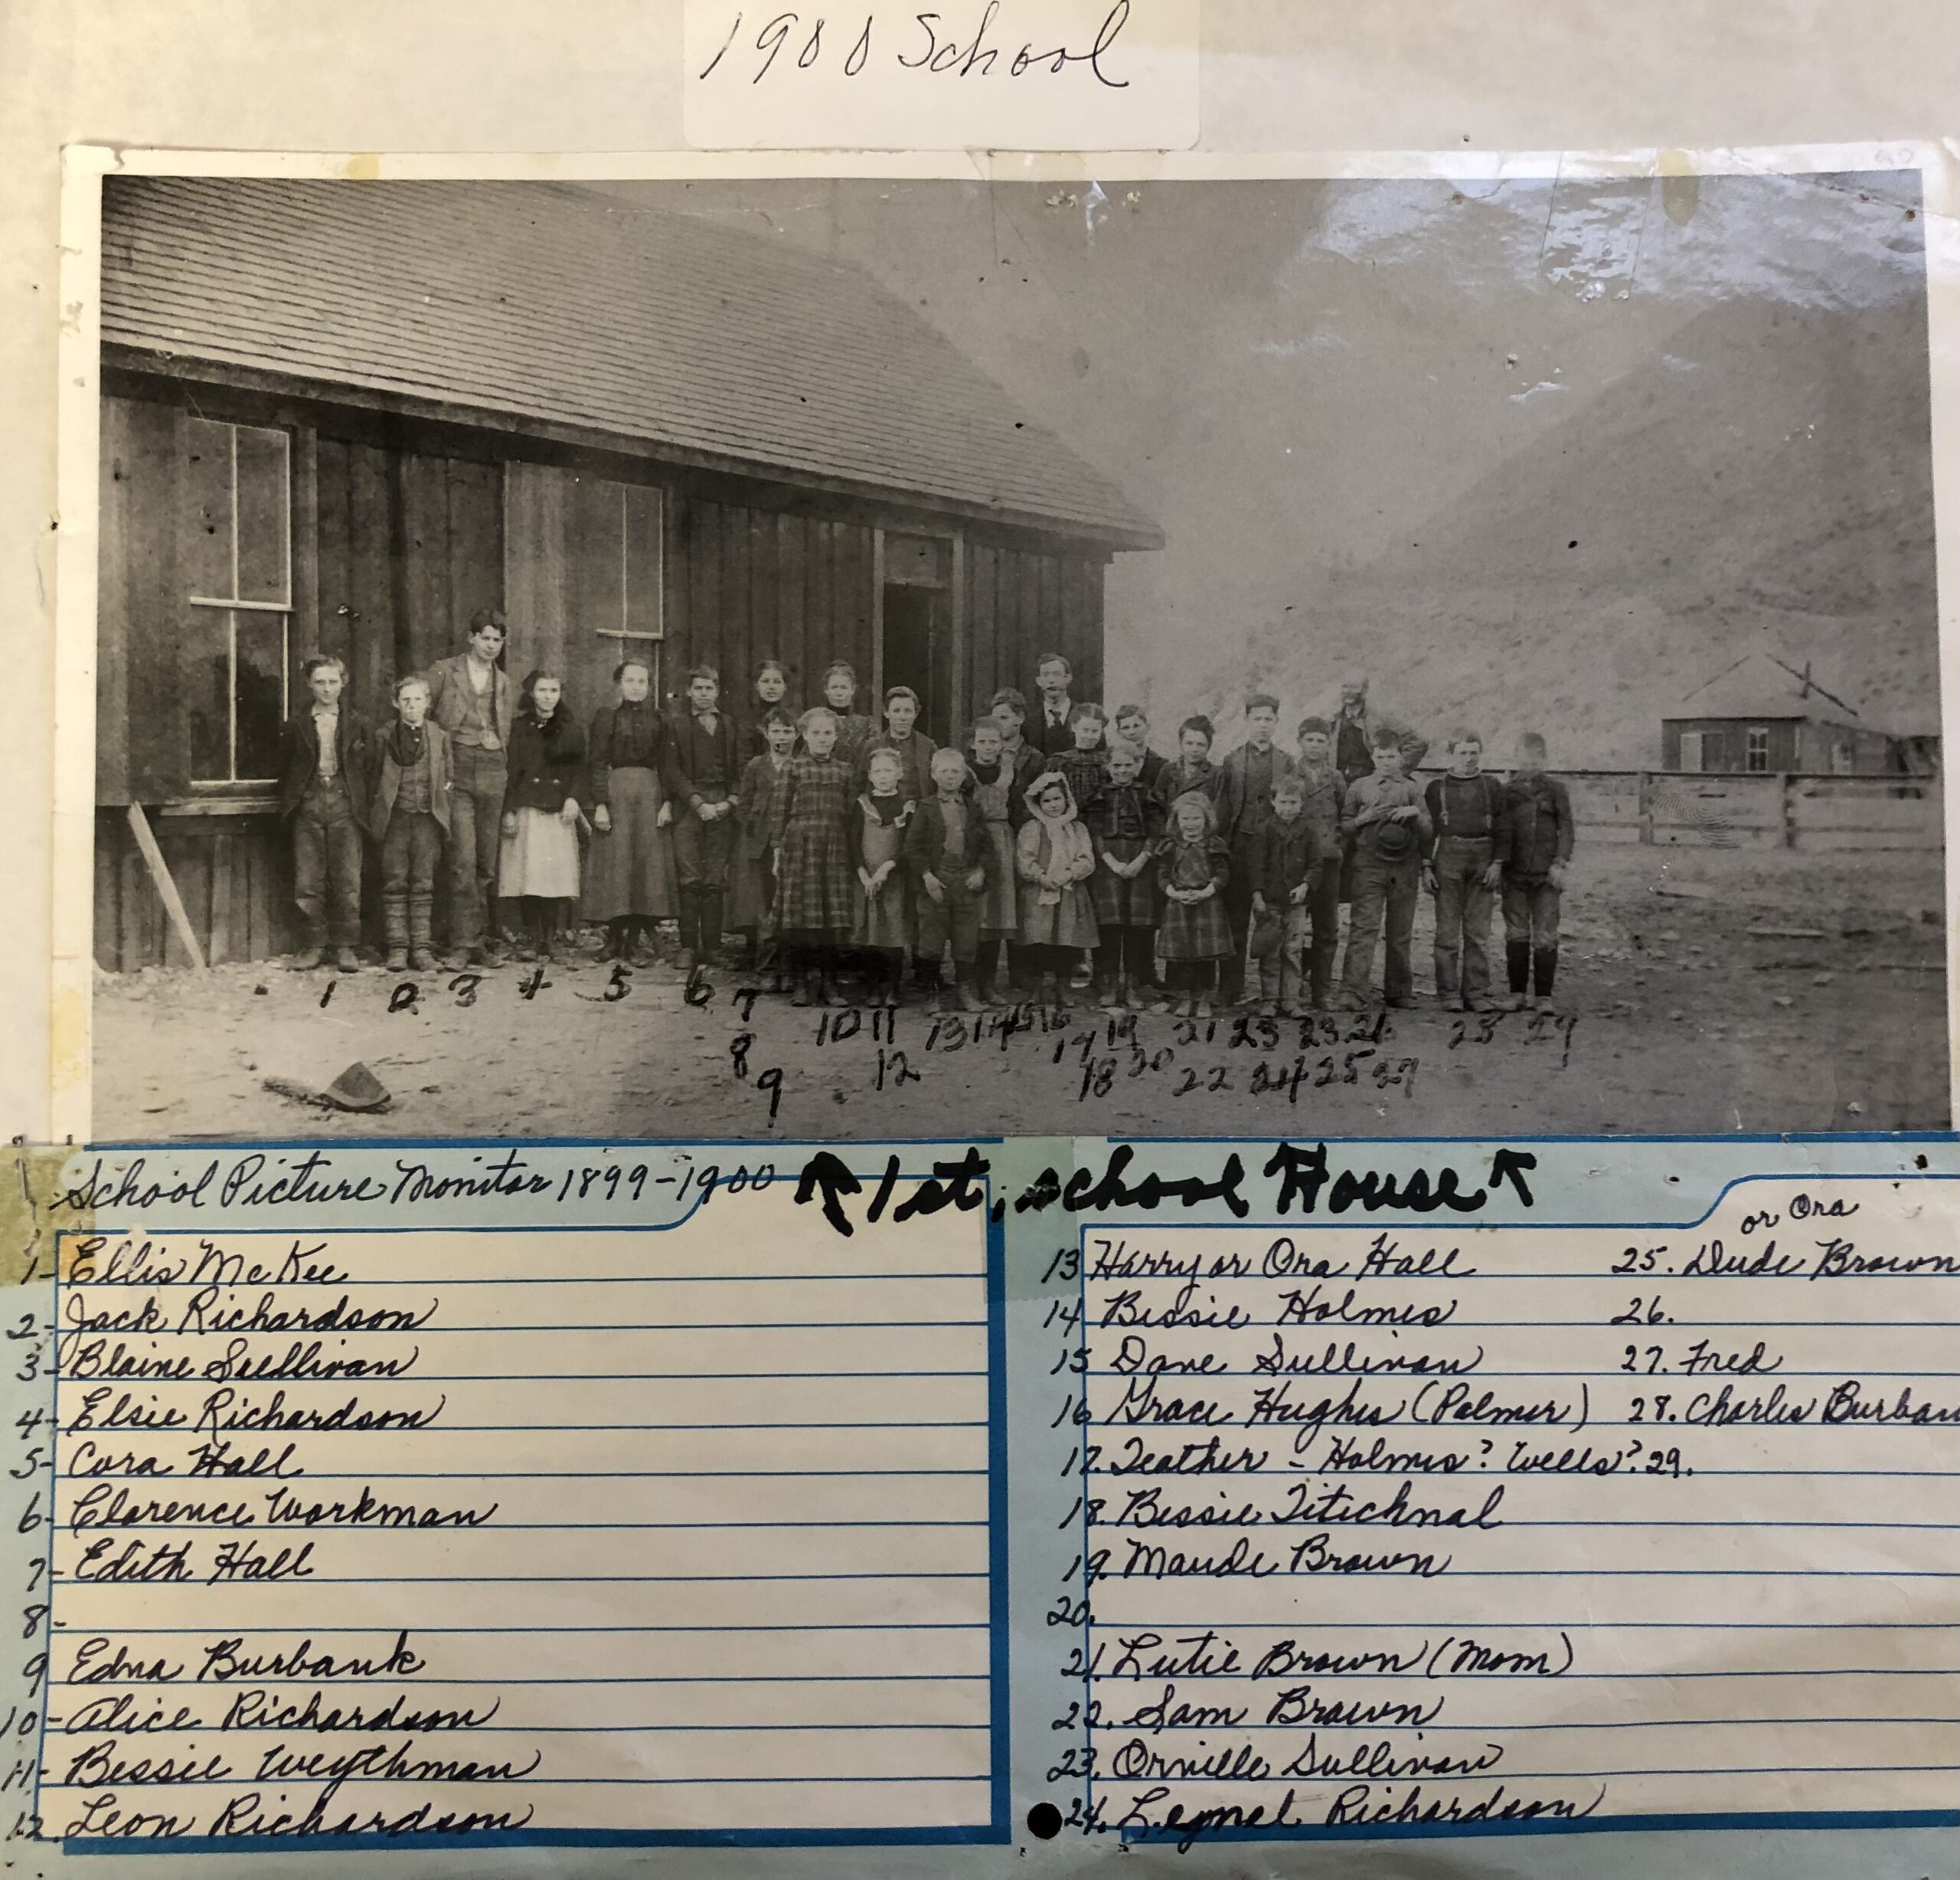 1900 School
1 2 3 4 5 6 7
10 11 13 14 15 16 19 21 23 23 26 28 29
8 12 17 18 20 22 24 25 27
9
School Picture Monitor 1899-1900 1st. School House
or Ora
1- Ellis McKee
2- Jack Richardson
3- Blaine Sullivan
4- Elsie Richardson
5- Cora Hall
6- Clarence Workman
7- Edith Hall
8-
9 Edna Burbank
10- Alice Richardson
11- Bessie Weythman
12. Leon Richardson
13 Harry or Ora Hall 25. Dude Brown
14 Bessie Holmes 26.
15 Dave Sullivan 27. Fred
16 Grace Hughes (Palmer) 28. Charles Burban
17. Teather - Holmes? Wells? 29.
18. Bessie Titichnal
19. Maude Brown
20.
21. Lutie Brown (Mom)
22. Sam Brown
23. Orville Sullivan
24. Richardson